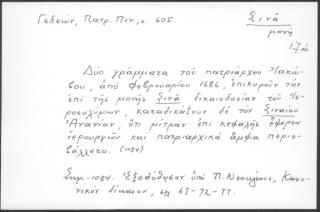 Γεδεών, Πατρ. Πιν., σ. 605
Σινᾶ
μονή
Δύο γράμματα τοῦ πατριάρχου Ἰακώ-
βου, ἀπό Φεβρουαρίου 1686, ἐπικυροῦν τήν
ἐπί τῆς μονῆς Σινᾶ δικαιοδοσίαν τοῦ Ἱε-
ροσολύμων, καταδικάζουν δέ τόν Σιναΐου
Ἀνανίαν, ὅτι μίτραν ἐπί κεφαλῆς ἔφερεν
ἱερουργῶν καί πατριαρχικά ἄμφια περιε-
βάλλετο. (1084)
Σημ. 1084. Ἐξεδόθησαν ὑπό Π. Νεοκλέους, Κανο-
νικόν δίκαιον, σσ 67-72-77.